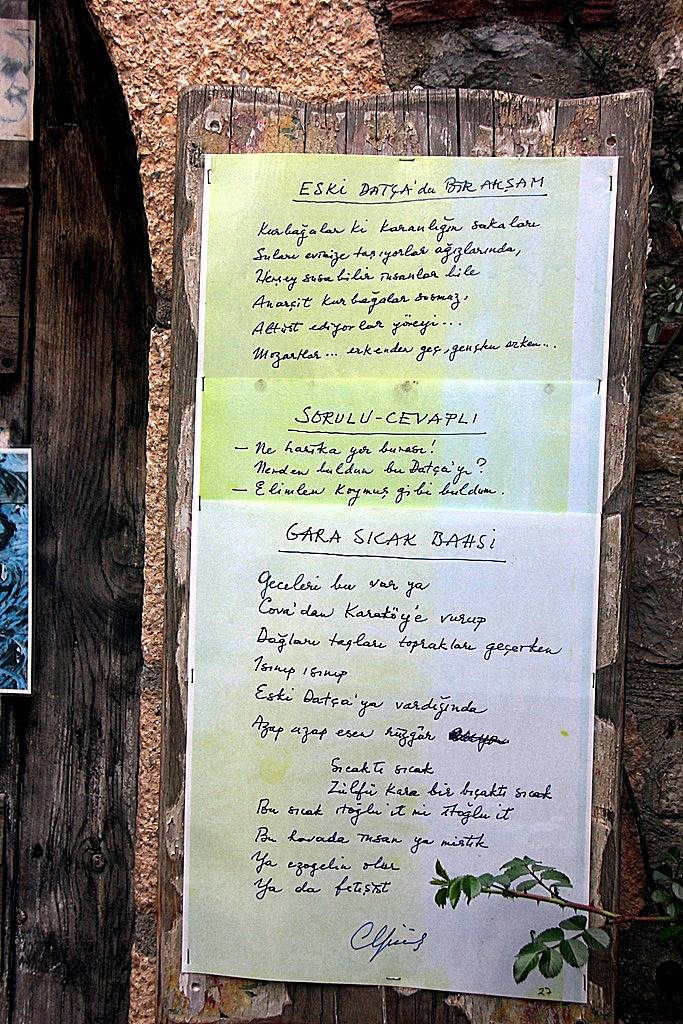 ESKİ DATÇA'da BİR AKŞAM
Kurbağalar ki karanlığın sakaları
Suları evinize taşıyorlar ağızlarında,
Herşey susabilir insanlar bile
Anarşit kurbağalar susmaz,
Altüst ediyorlar yöreyi...
Mozartlar... erkenden geç, gençken
SORULU-CEVAPLI
- Ne harika yer burası!
Nerden buldun bu Datça'yı?
- Elimlen koymuş gibi buldum.
GARA SICAK BAHSİ
Geceleri bu var ya
Cova'dan Karaköy'e vurup
Dağları taşları toprakları geçerken
Isınıp ısınıp
Eski Datça'ya vardığında
Azap azap esen rüzgâr
Sıcaktı sıcak
Zülfü kara bir bıçaktı sıcak
Bu sıcak itoğlu it mi itoğlu it
Bu havada insan ya mistik
Ya ezogelin olur
Ya da fetişist
27